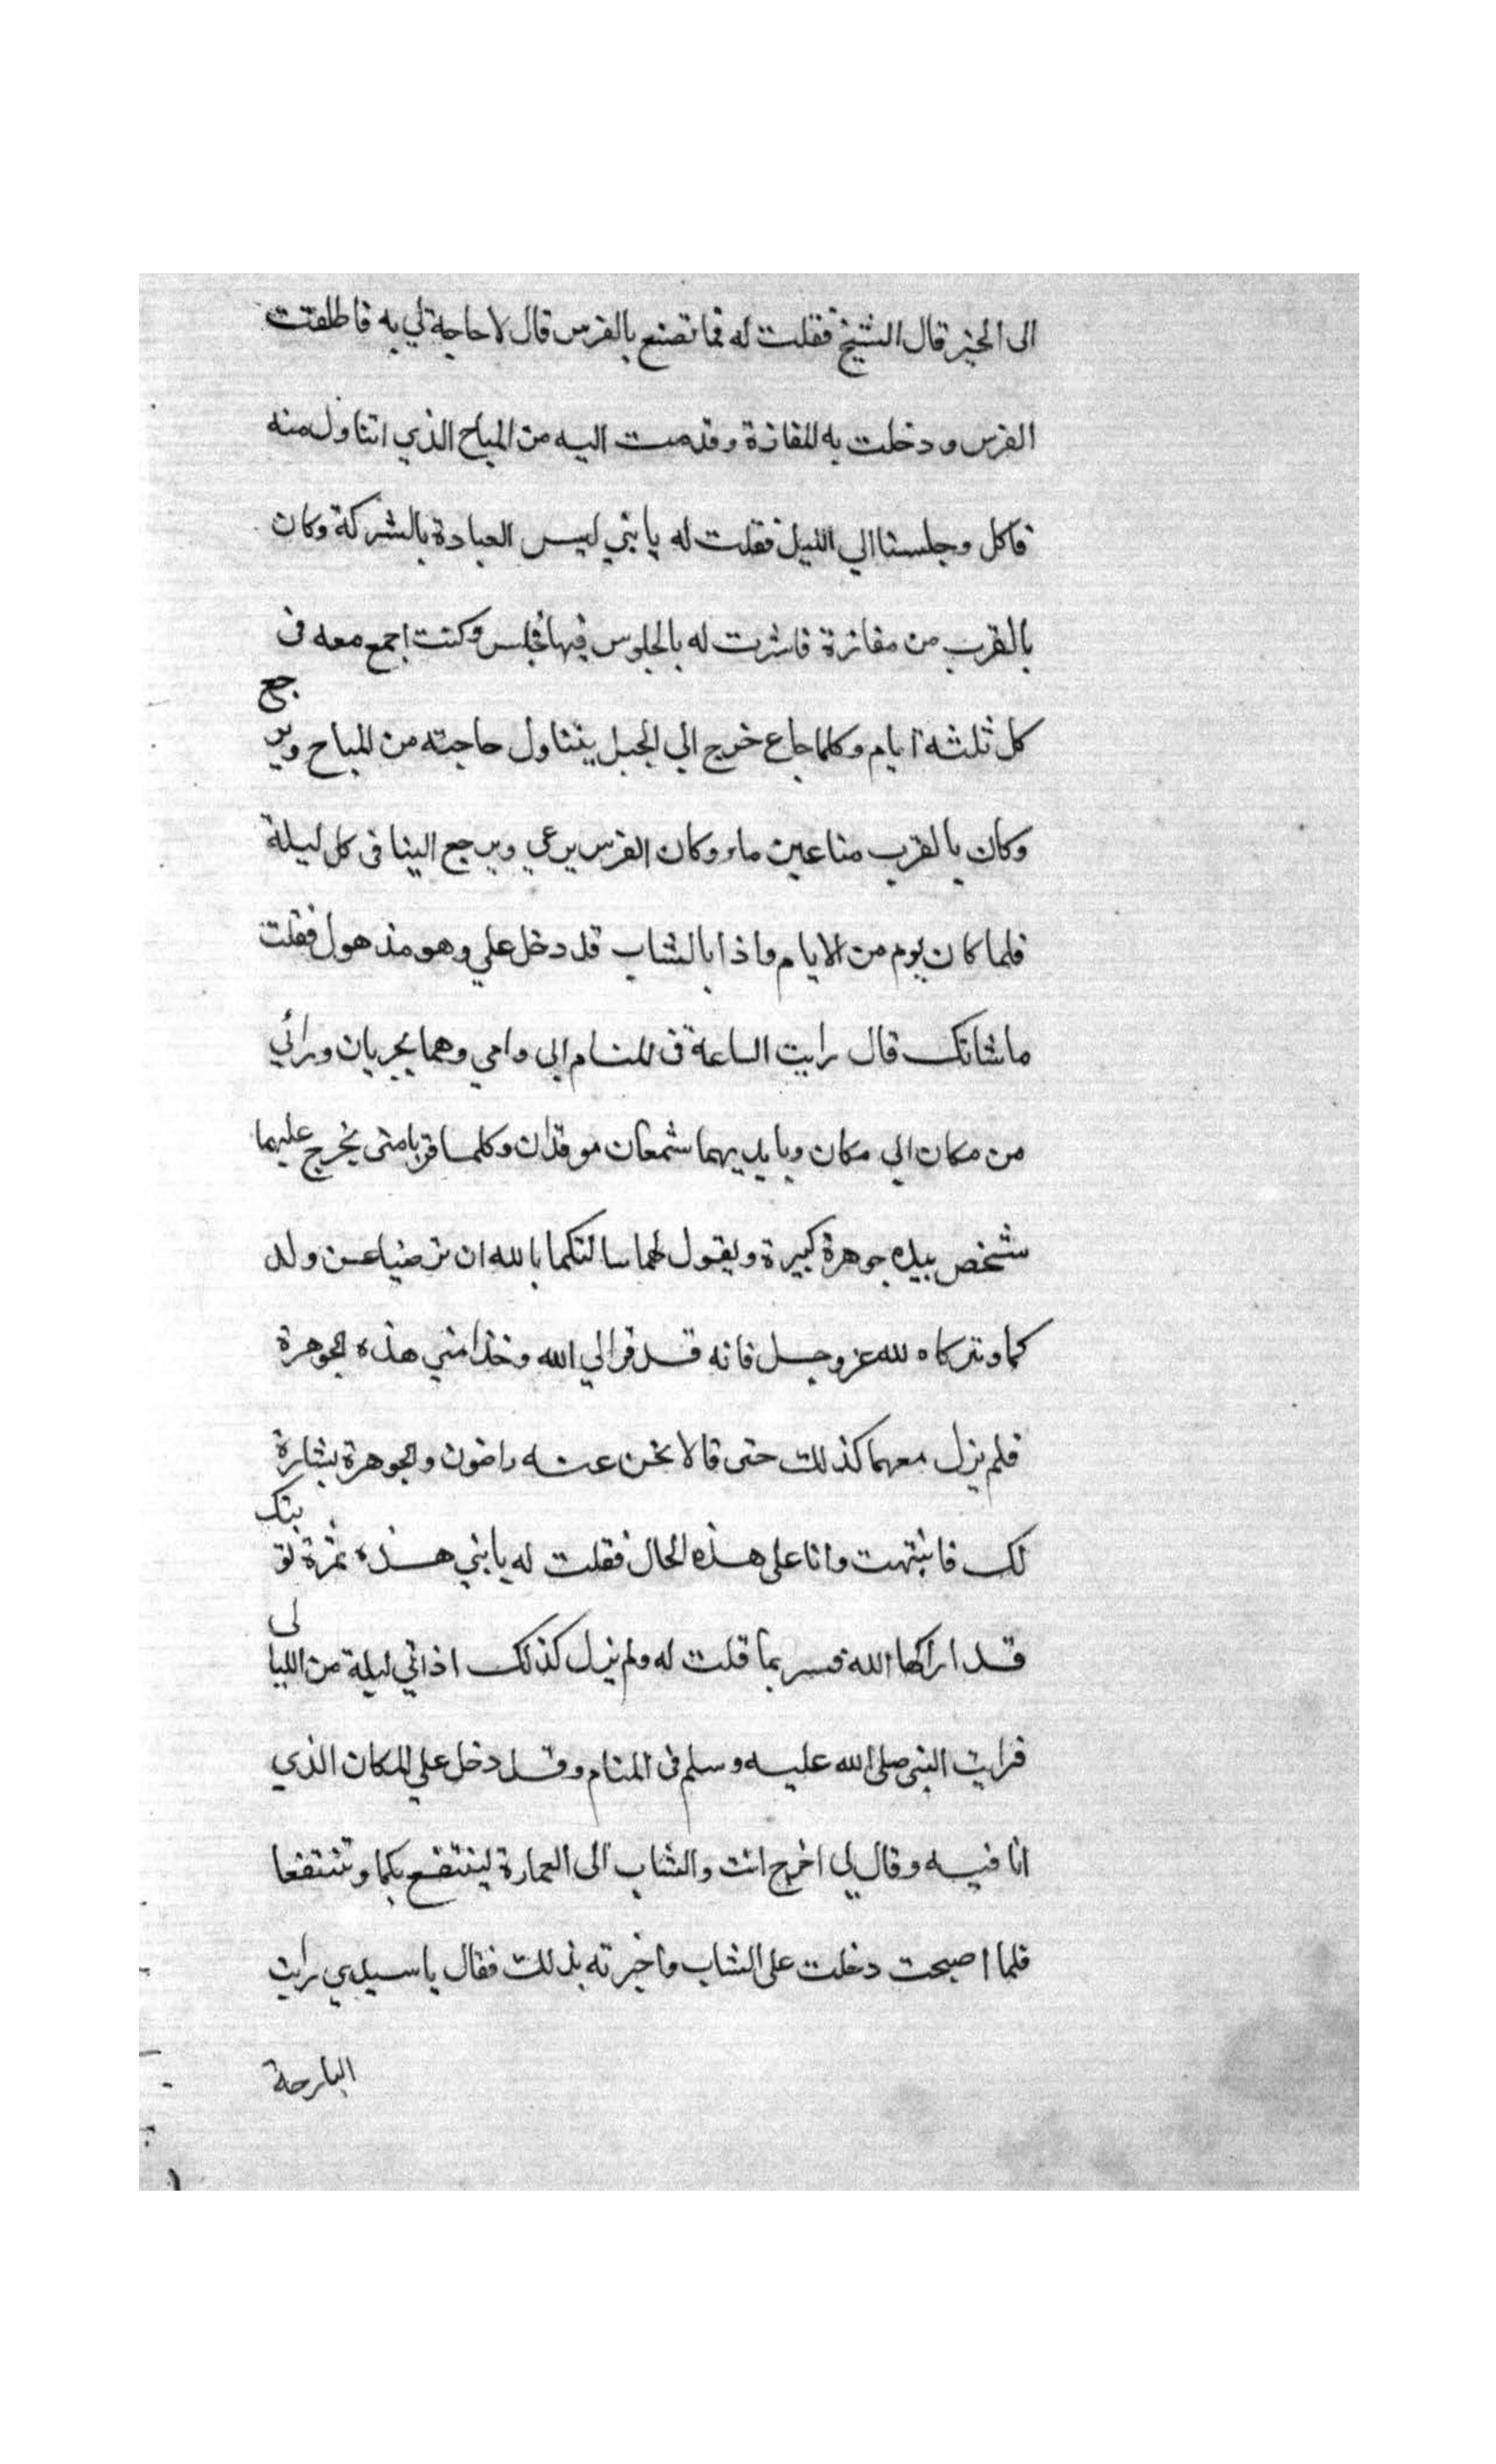 الى الخير قال الشيخ فقلت له فما تصنع بالفرس قال لا حاجة لي به فاطلقت
الفرس ودخلت به المفازة وقدمت اليه من المباح الذي اتناول منه
فاكل وجلسنا الي الليل فقلت له يا بني ليس العبادة بالشركة وكان
بالقرب من مفازة فاشرت له بالجلوس فيها فجلس وكنت اجمع معه فى
كل ثلثة ايام وكلما جاع خرج الي الجبل يتناول حاجته من المباح ويرجع
وكان بالقرب منا عين ماء وكان الفرس يرعي ويرجع الينا فى كل ليلة
فلما كان يوم من الايام واذا بالشاب قد دخل علي وهو مذهول فقلت
ما شانك قال رايت الساعة فى المنام ابي وامي وهما يجريان ورائي
من مكان الي مكان وبايديهما شمعتان موقدتان وكلما قربا منى يخرج عليهما
شخص بيده جوهرة كبيرة ويقول لهما سالتكما بالله ان ترضيا عن ولد
كما وتتركاه لله عز وجل فانه قد فر الي الله وخذا مني هذه الجوهرة
فلم يزل معهما كذلك حتى قالا نحن عنه راضون والجوهرة بشارة
لك فانتبهت وانا على هذه الحال فقلت له يا بني هذه ثمرة توبتك
قد اراكها الله فسر بما قلت له ولم نزل كذلك اذ اني ليلة من الليالى
فرايت النبى صلى الله عليه وسلم فى المنام وقد دخل علي المكان الذي
انا فيه وقال لي اخرج انت والشاب الى العمارة لينتفع بكما وتنتفعا
فلما اصبحت دخلت على الشاب واخبرته بذلك فقال يا سيدي رايت
البارحة